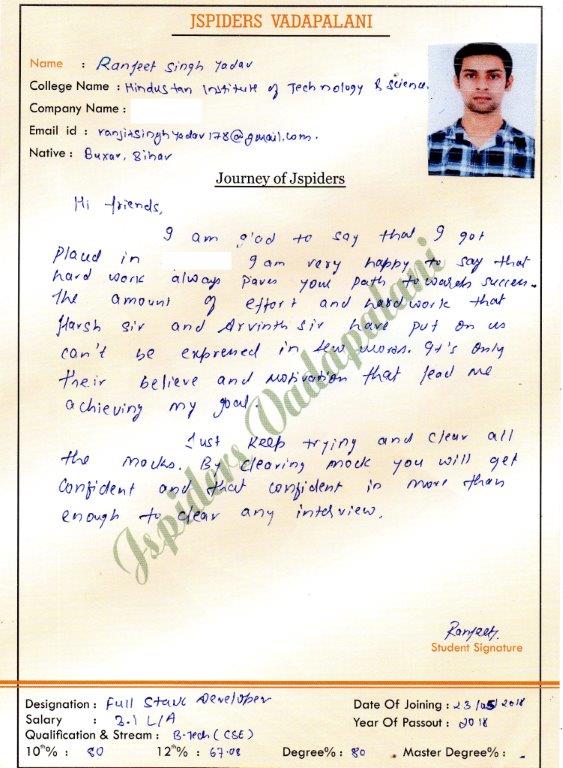 JSPIDERS VADAPALANI
Name : Ranjeet Singh Yadav
College Name : Hindustan Institute of Technology & Science.
Company Name :
Email id : ranjitsinghyadav178@gmail.com.
Native : Buxar, Bihar
Journey of Jspiders
Hi friends,
I am glad to say that I got
placed in I am very happy to say that
hard work always paves your path towards success.
The amount of effort and hardwork that
Harsh Sir and Arvinth sir have put on us
can't be expressed in few words. It's only
their believe and motivation that lead me
achieving my goal.
Just keep trying and clear all
the mocks. By clearing mock you will get
confident and that confident is more than
enough to clear any interview.
Jspiders Vadapalani
Ranjeet.
Student Signature
Designation : Full Stack Developer
Salary : 3.1 L/A
Qualification & Stream : B-Tech (CSE)
10th% : 80 12th% : 67.08 Degree% : 80 Master Degree% : -
Date Of Joining : 23/05/2018
Year Of Passout : 2018